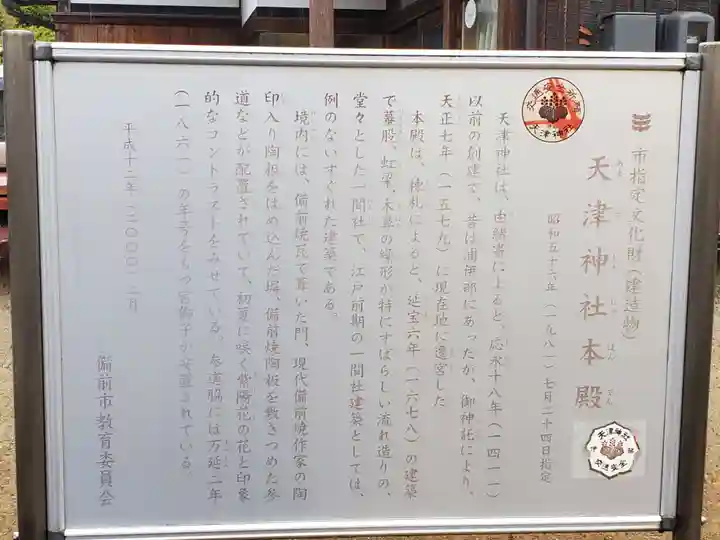 市指定文化財(建造物)
天津神社本殿
あま つ じん じゃ ほん でん
昭和五十六年(一九八一)七月二十四日指定
天津神社は、由緒書によると、応永十八年(一四一一)
以前の創建で、昔は浦伊部にあったが、御神託により、
天正七年(一五七九)に現在地に遷宮した
本殿は、棟札によると、延宝六年(一六七八)の建築
で蟇股、虹梁、木鼻の線形が特にすばらしい流れ造りの、
堂々とした一間社で、江戸前期の一間社建築としては、
例のないすぐれた建築である。
境内には、備前焼瓦で葺いた門、現代備前焼作家の陶
印入り陶板をはめ込んだ塀、備前焼陶板を敷きつめた参
道などが配置されていて、初夏に咲く紫陽花の花と印象
的なコントラストをみせている。参道脇には万延二年
(一八六一)の年号をもつ宮獅子が安置されている。
平成十二年(二〇〇〇)二月
備前市教育委員会
天津神社